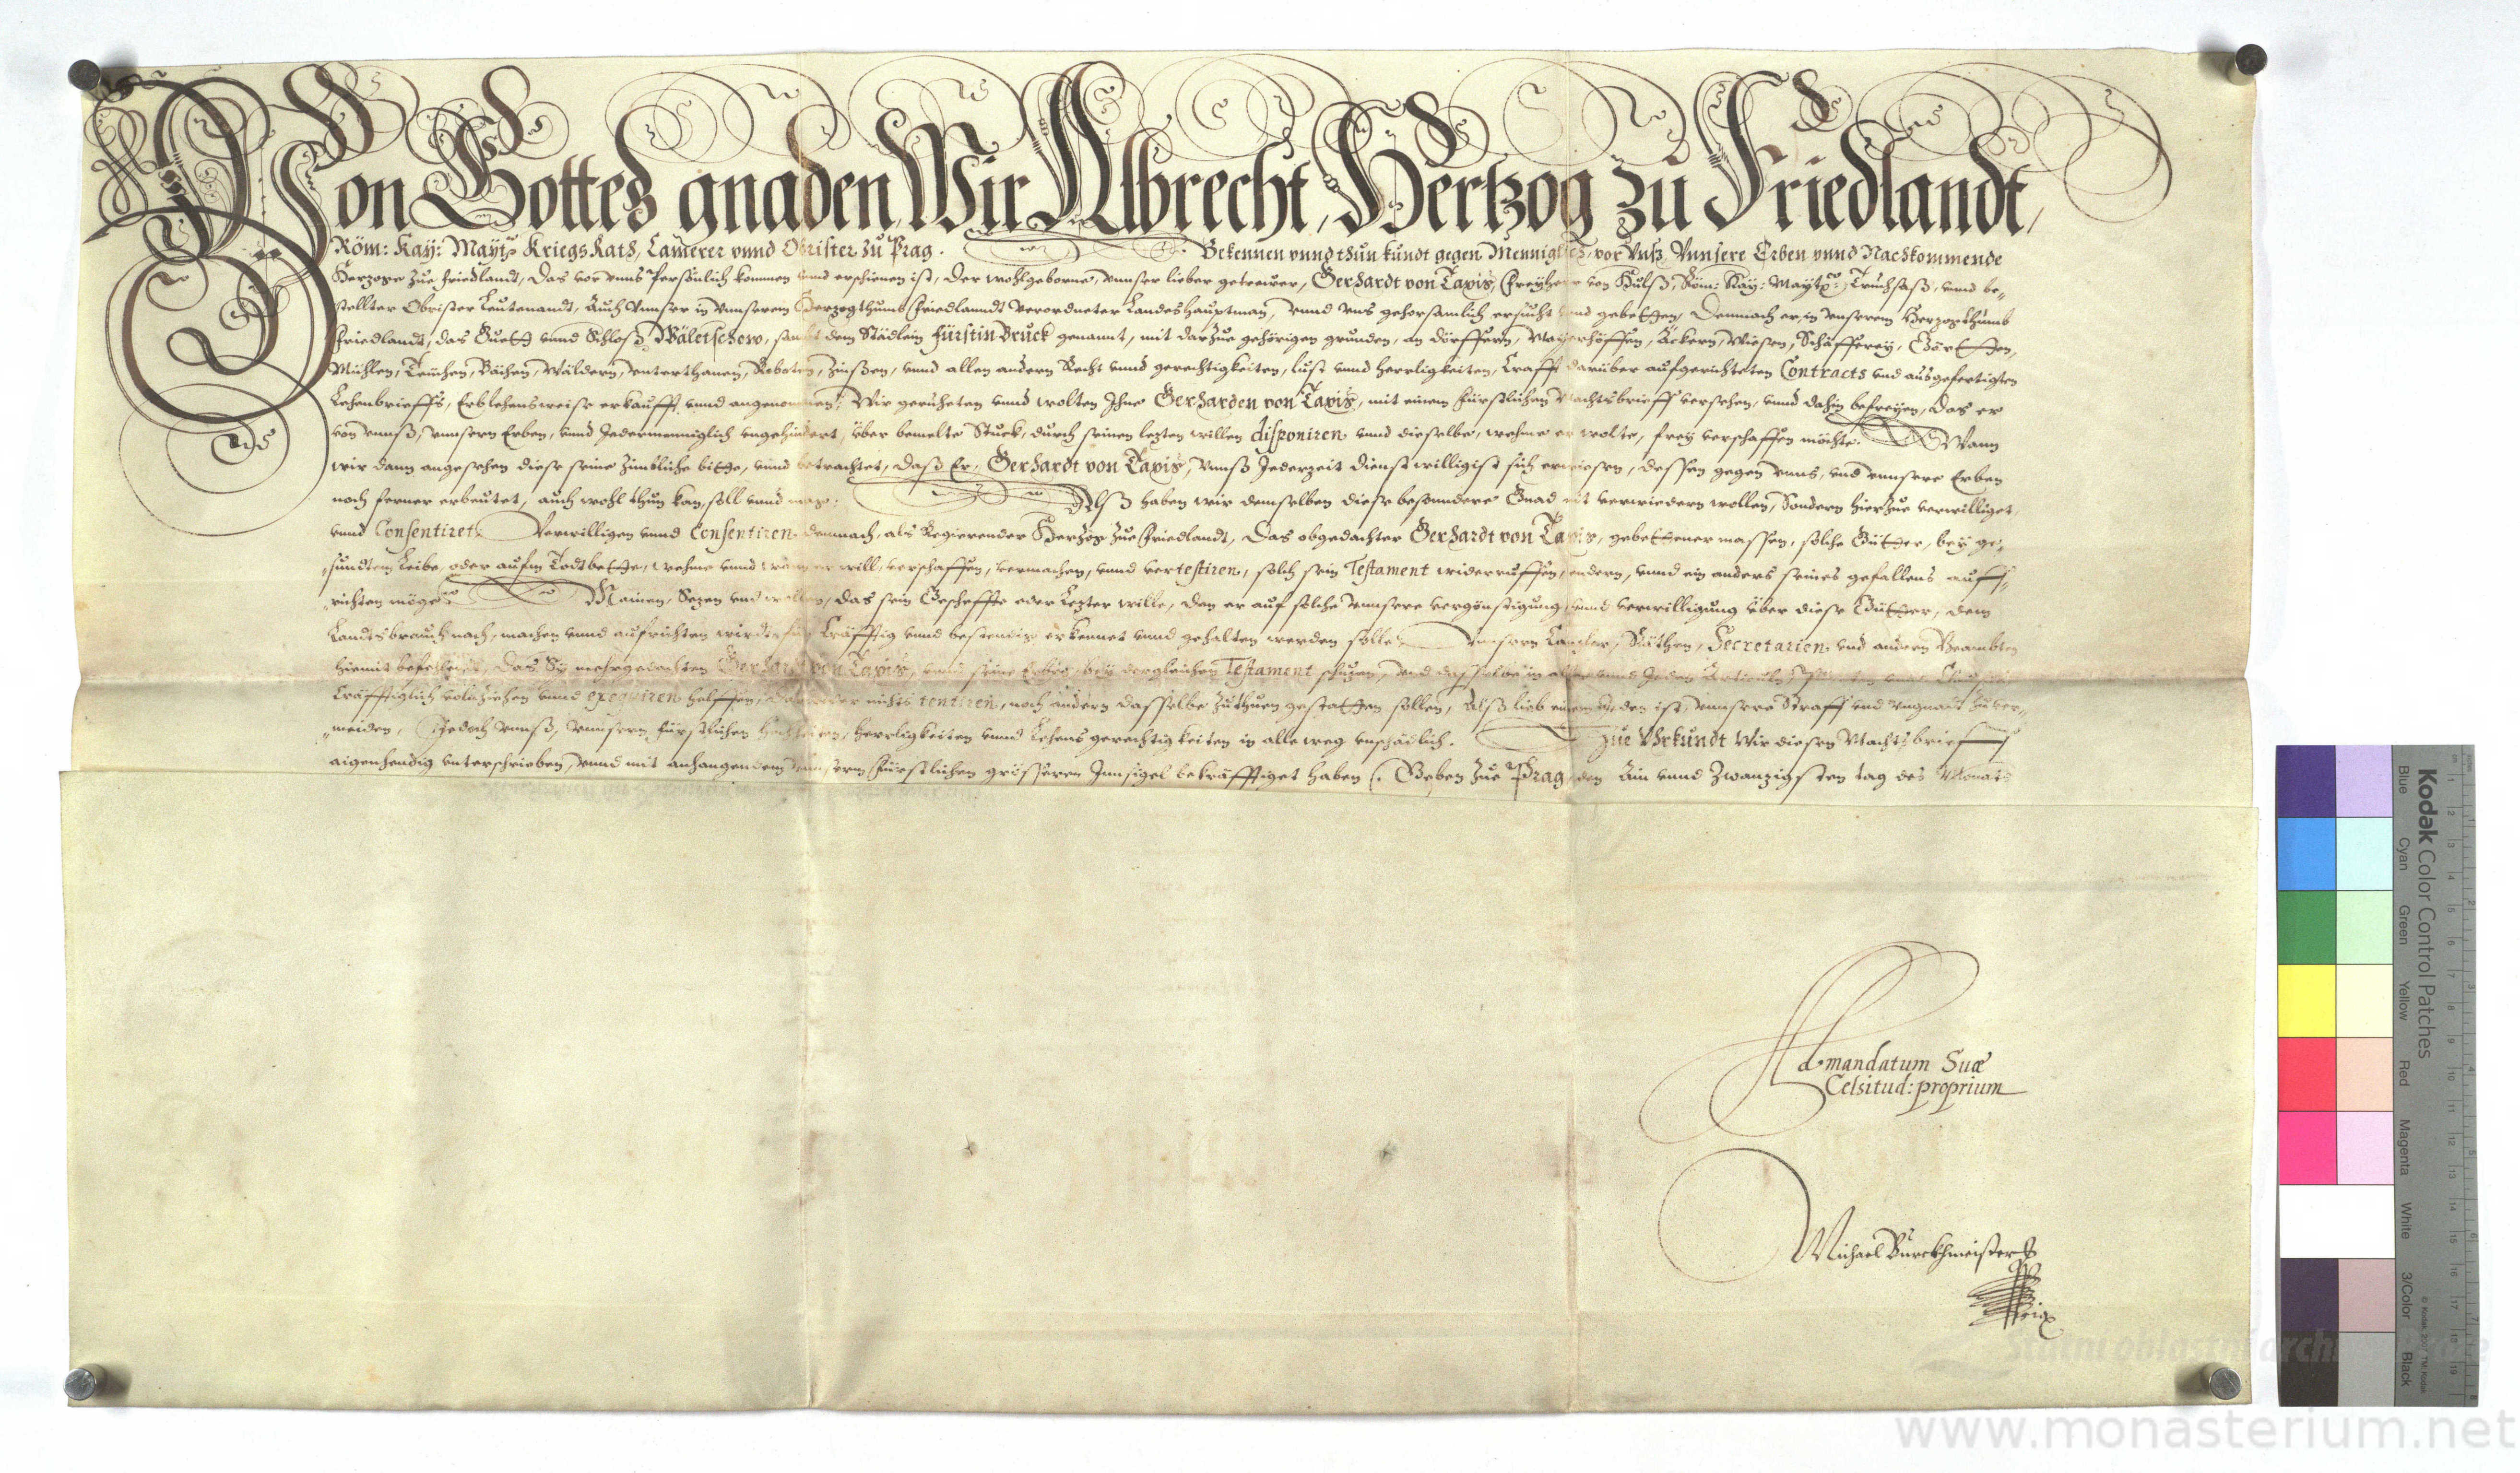 Von Gottes gnaden Wir Albrecht, Hertzog zu Friedlandt,
Röm: Kay: Maytt: Kriegs Rath, Camerer vnnd Obrister zu Prag. Bekennen vnnd thun kundt gegen Menniglich, vor Vnß, Vnnsere Erben vnnd Nachkommende
Herzoge zue Friedlandt, Das vor vnns Persönlich kommen vnnd erschienen ist, Der wohlgeborne, vnnser lieber getreuer, Gerhardt von Taxis, Freyherr von Hulß, Röm: Kay: Maytt: Truchsaß, vnnd be-
stellter Obrister Leutenandt, Auch Vnnser in vnnserem Herzogthumb Friedlanndt verordneter Landeshauptman, vnnd vns gehorsamlich ersucht vnnd gebetten, Demnach er in vnserem Herzogthumb
Friedlandt, das Guett vnnd Schloß Wäletschow, sambt dem Städlein Fürstin Bruck genant, mit darzue gehörigen grunden, an dörffern, Mayerhöffen, Äckern, Wiesen, Schäfferey, Görtten,
Mühlen, Teuchen, Bächen, Wäldern, vnterthanen, Roboten, Zinßen, vnnd allen andern Recht vnnd gerechtigkeiten, lust vnnd herrligkeiten, Crafft darüber aufgerichteten Contracts vnd ausgefertigten
Lehenbrieffs, Erblehensweise erkaufft vnnd angenommen; Wir geruheten vnnd wolten Ihne Gerharden von Taxis, mit einem fürstlichen Machtsbrieff versehen, vnnd dahin befreyen, Das er
von vnnß, vnnsern Erben, vnnd Jedermenniglich vngehindert, über bemelte Stuck, durch seinen lezten willen disponiren vnnd dieselbe, wehme er wolte, frey verschaffen möchte. Wann
wir dann angesehen diese seine zimbliche bitte, vnnd betrachtet, Daß Er, Gerhardt von Taxis, Vnnß Jederzeit dienstwilligist sich erwiesen, dessen gegen vnns, vnd vnnsere Erben
noch ferner erbeutet, auch wohl thun kan, soll vnnd mag: Alß haben wir demselben diese besonndere Gnad nit verwiedern wollen, Sondern hierzue verwilliget
vnnd Consentiret. Verwilligen vnnd Consentiren demnach, als Regierender Herzog zue Friedlandt, Das obgedachter Gerhardt von Taxis, gebettener massen, solche Gütter, bey ge-
-sundtem Leibe, oder aufm Todtbette, wehme vnnd wann er will, verschaffen, vermachen, vnnd vertestiren, solch sein Testament widerruffen, endern, vnnd ein anders seines gefallens auff-
-richten möge. Meinen, Sezen vnd wollen, das sein Gescheffte oder Lezter wille, den er auf solche vnnsere vergönstigung vnnd verwilligung über diese Gütter, dem
Landtsbrauch nach, machen vnnd aufrichten wirdt, für Cräfftig vnnd bestendig erkennet vnnd gehalten werden solle. Vnnsern Canzler, Räthen, Secretarien vnd andern Beambten
hiemit befehlendt, Das Sy mehrgedachten Gerhardt von Taxis, vnnd seine Erben, bey dergleichen Testament schuzen, vnd dasselbe in allen vnnd Jeden Articuln
Cräfftiglich volnziehen vnnd exequiren helffen, darwider nichts tentiren, noch andern dasselbe zuthuen gestatten sollen, Alß lieb einem Jeden ist, vnnsere Straff vnd vngnadt zuver-
-meiden, Jedoch vnnß, vnnsern fürstlichen hochheiten, herrligkeiten vnnd Lehens gerechtigkeiten in alle weg vnschädlich. Zue Vhrkundt Wir diesen Machtsbrieff
aigenhendig vnterschrieben, vnnd mit anhangendem vnnserm fürstlichen grösseren Innsigel bekräfftiget haben. Geben zue Prag, den Ain vnnd Zwanzigsten tag des Monats
Ad mandatum Suæ
Celsitud: proprium
Michael Burckhmeister
Kodak Color Control Patches
Blue Cyan Green Yellow Red Magenta White 3/Color Black
www.monasterium.net